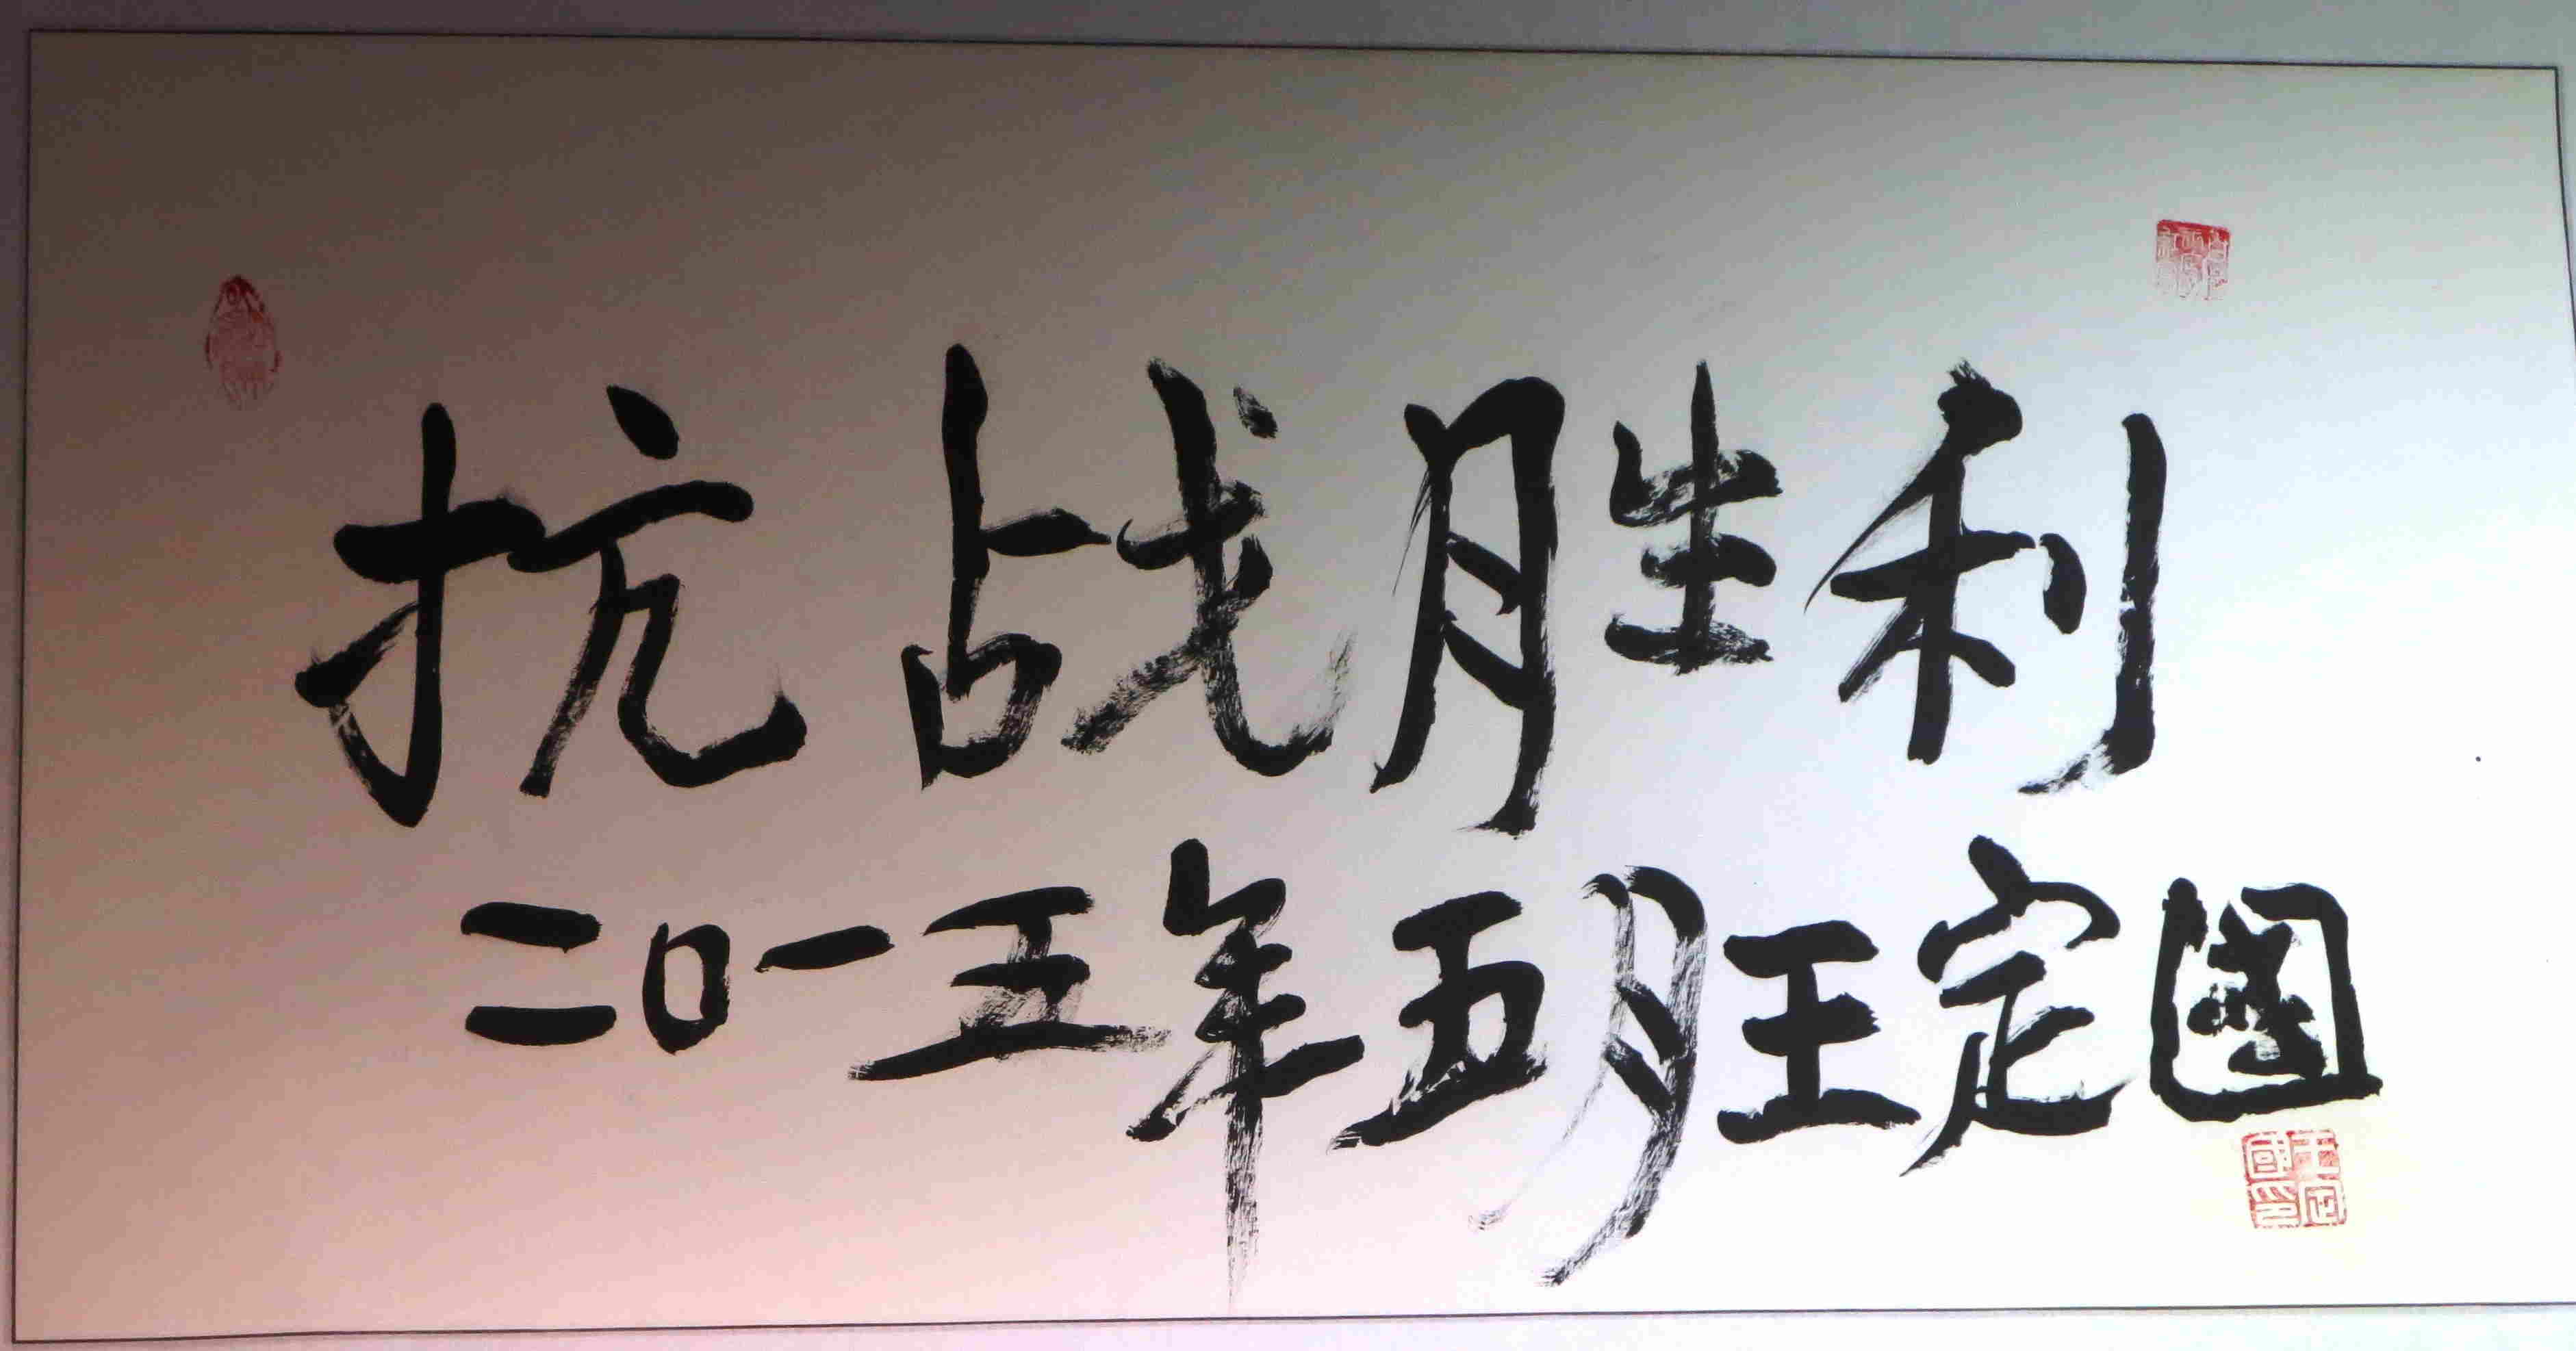 抗战胜利
二〇一五年五月王定國
王定國印